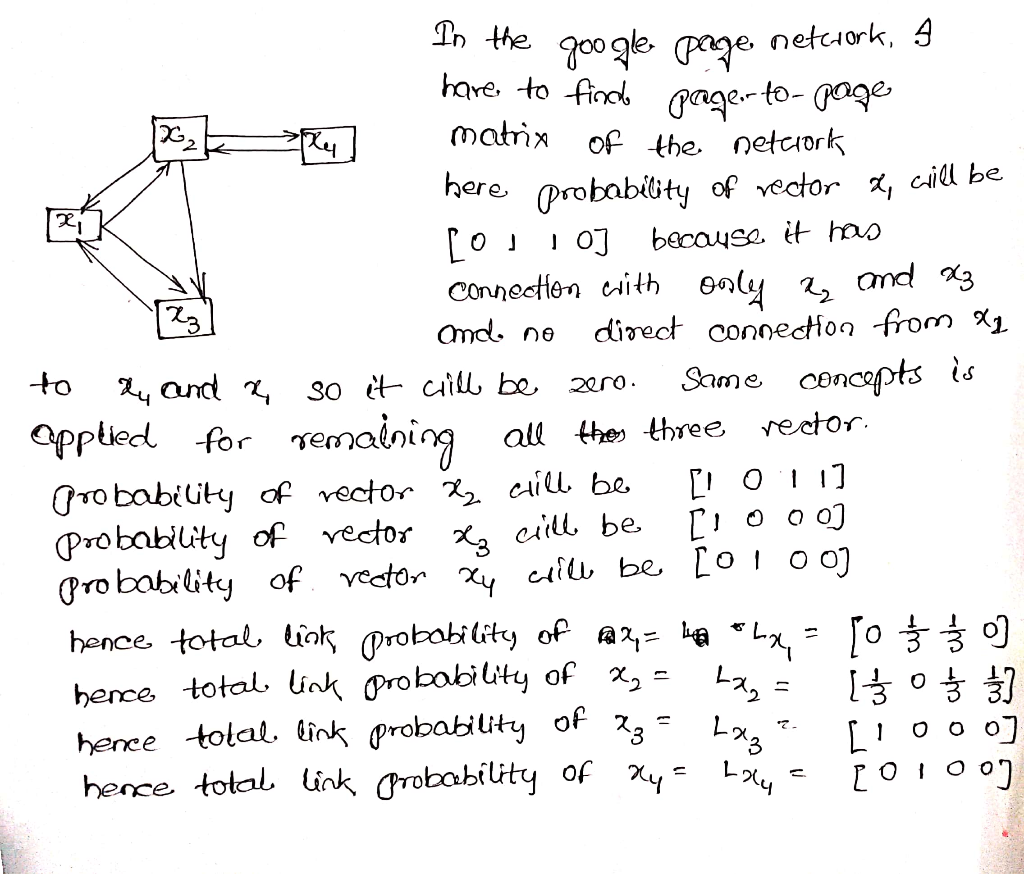 In the google page network, I
have to find page-to-page
matrix of the network
here probability of vector x₁ will be
[0 1 1 0] because it has
connection with only x₂ and x₃
and no direct connection from x₁
to x₄ and x₁ so it will be zero. Same concepts is
applied for remaining all three vector.
probability of vector x₂ will be [1 0 1 1]
probability of vector x₃ will be [1 0 0 0]
probability of vector x₄ will be [0 1 0 0]
hence total link probability of x₁ = Lx₁ = [0 1/3 1/3 0]
hence total link probability of x₂ = Lx₂ = [1/3 0 1/3 1/3]
hence total link probability of x₃ = Lx₃ = [1 0 0 0]
hence total link probability of x₄ = Lx₄ = [0 1 0 0]
x₂
x₄
x₁
x₃